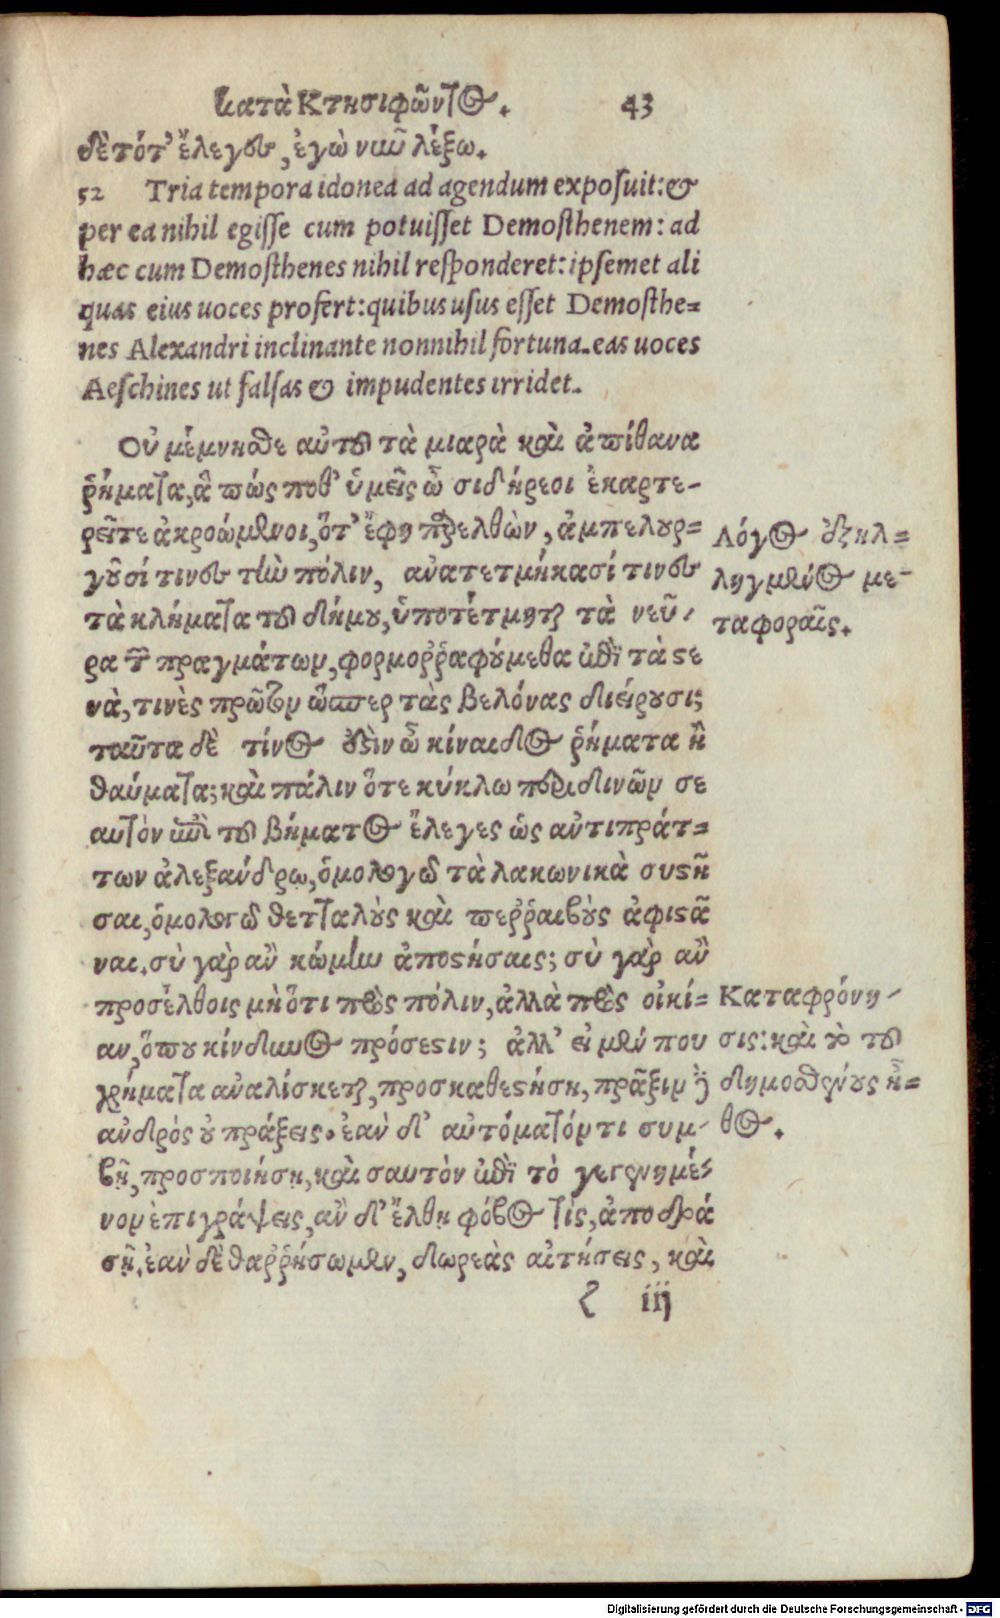 κατὰ Κτησιφῶντος. 43
δὲ τότ' ἔλεγες, ἐγὼ νῦν λέξω.
52 Tria tempora idonea ad agendum exposuit: &
per ea nihil egisse cum potuisset Demosthenem: ad
hæc cum Demosthenes nihil responderet: ipsemet ali
quas eius uoces profert: quibus usus esset Demosthe=
nes Alexandri inclinante nonnihil fortuna. eas uoces
Aeschines ut falsas & impudentes irridet.
Οὐ μέμνησθε αὐτοῦ τὰ μιαρὰ καὶ ἀπίθανα
ῥήματα, ἃ πώς ποθ' ὑμεῖς ὦ σιδήρεοι ἐκαρτε-
ρεῖτε ἀκροώμενοι, ὅτ' ἔφη παρελθὼν, ἀμπελουρ=
γοῦσί τινες τὴν πόλιν, ἀνατετμήκασί τινες
τὰ κλήματα τοῦ δήμου, ὑποτέτμηται τὰ νεῦ-
ρα τῶν πραγμάτων, φορμορῥαφούμεθα ἐπὶ τὰ στε
νὰ, τινὲς πρῶτον ὥσπερ τὰς βελόνας διείρουσι;
ταῦτα δὲ τίνος ἐστὶν ὦ κίναιδος ῥήματα ἢ
θαύματα; καὶ πάλιν ὅτε κύκλω περιδινῶν σε
αυτὸν ἐπὶ τοῦ βήματος ἔλεγες ὡς ἀντιπράτ=
των ἀλεξάνδρῳ, ὁμολογῶ τὰ λακωνικὰ συστῆ
σαι, ὁμολογῶ θετταλοὺς καὶ περῥαιβοὺς ἀφιστά
ναι. σὺ γὰρ ἂν κώμην ἀποστήσαις; σὺ γὰρ ἂν
προσέλθοις μὴ ὅτι πρὸς πόλιν, ἀλλὰ πρὸς οἰκί=
αν, ὅπου κίνδυνος πρόσεστιν; ἀλλ' εἰ μέν που
χρήματα ἀναλίσκεται, προσκαθεστήση, πρᾶξιν δ'
ἀνδρὸς οὐ πράξεις. ἐὰν δ' αὐτόματόν τι συμ-
βῇ, προσποιήσῃ, καὶ σαυτὸν ἐπὶ τὸ γεγενημέ-
νον ἐπιγράψεις, ἂν δ' ἔλθῃ φόβος τὶς, ἀποδρά
σῃ, ἐὰν δὲ θαρῥήσωμεν, δωρεὰς αἰτήσεις, καὶ
ζ iij
Λόγος ἐξηλ=
ληγμένος με-
ταφοραῖς.
Καταφρόνη-
σις: καὶ τὸ τοῦ
δημοσθένους ἦ=
θος.